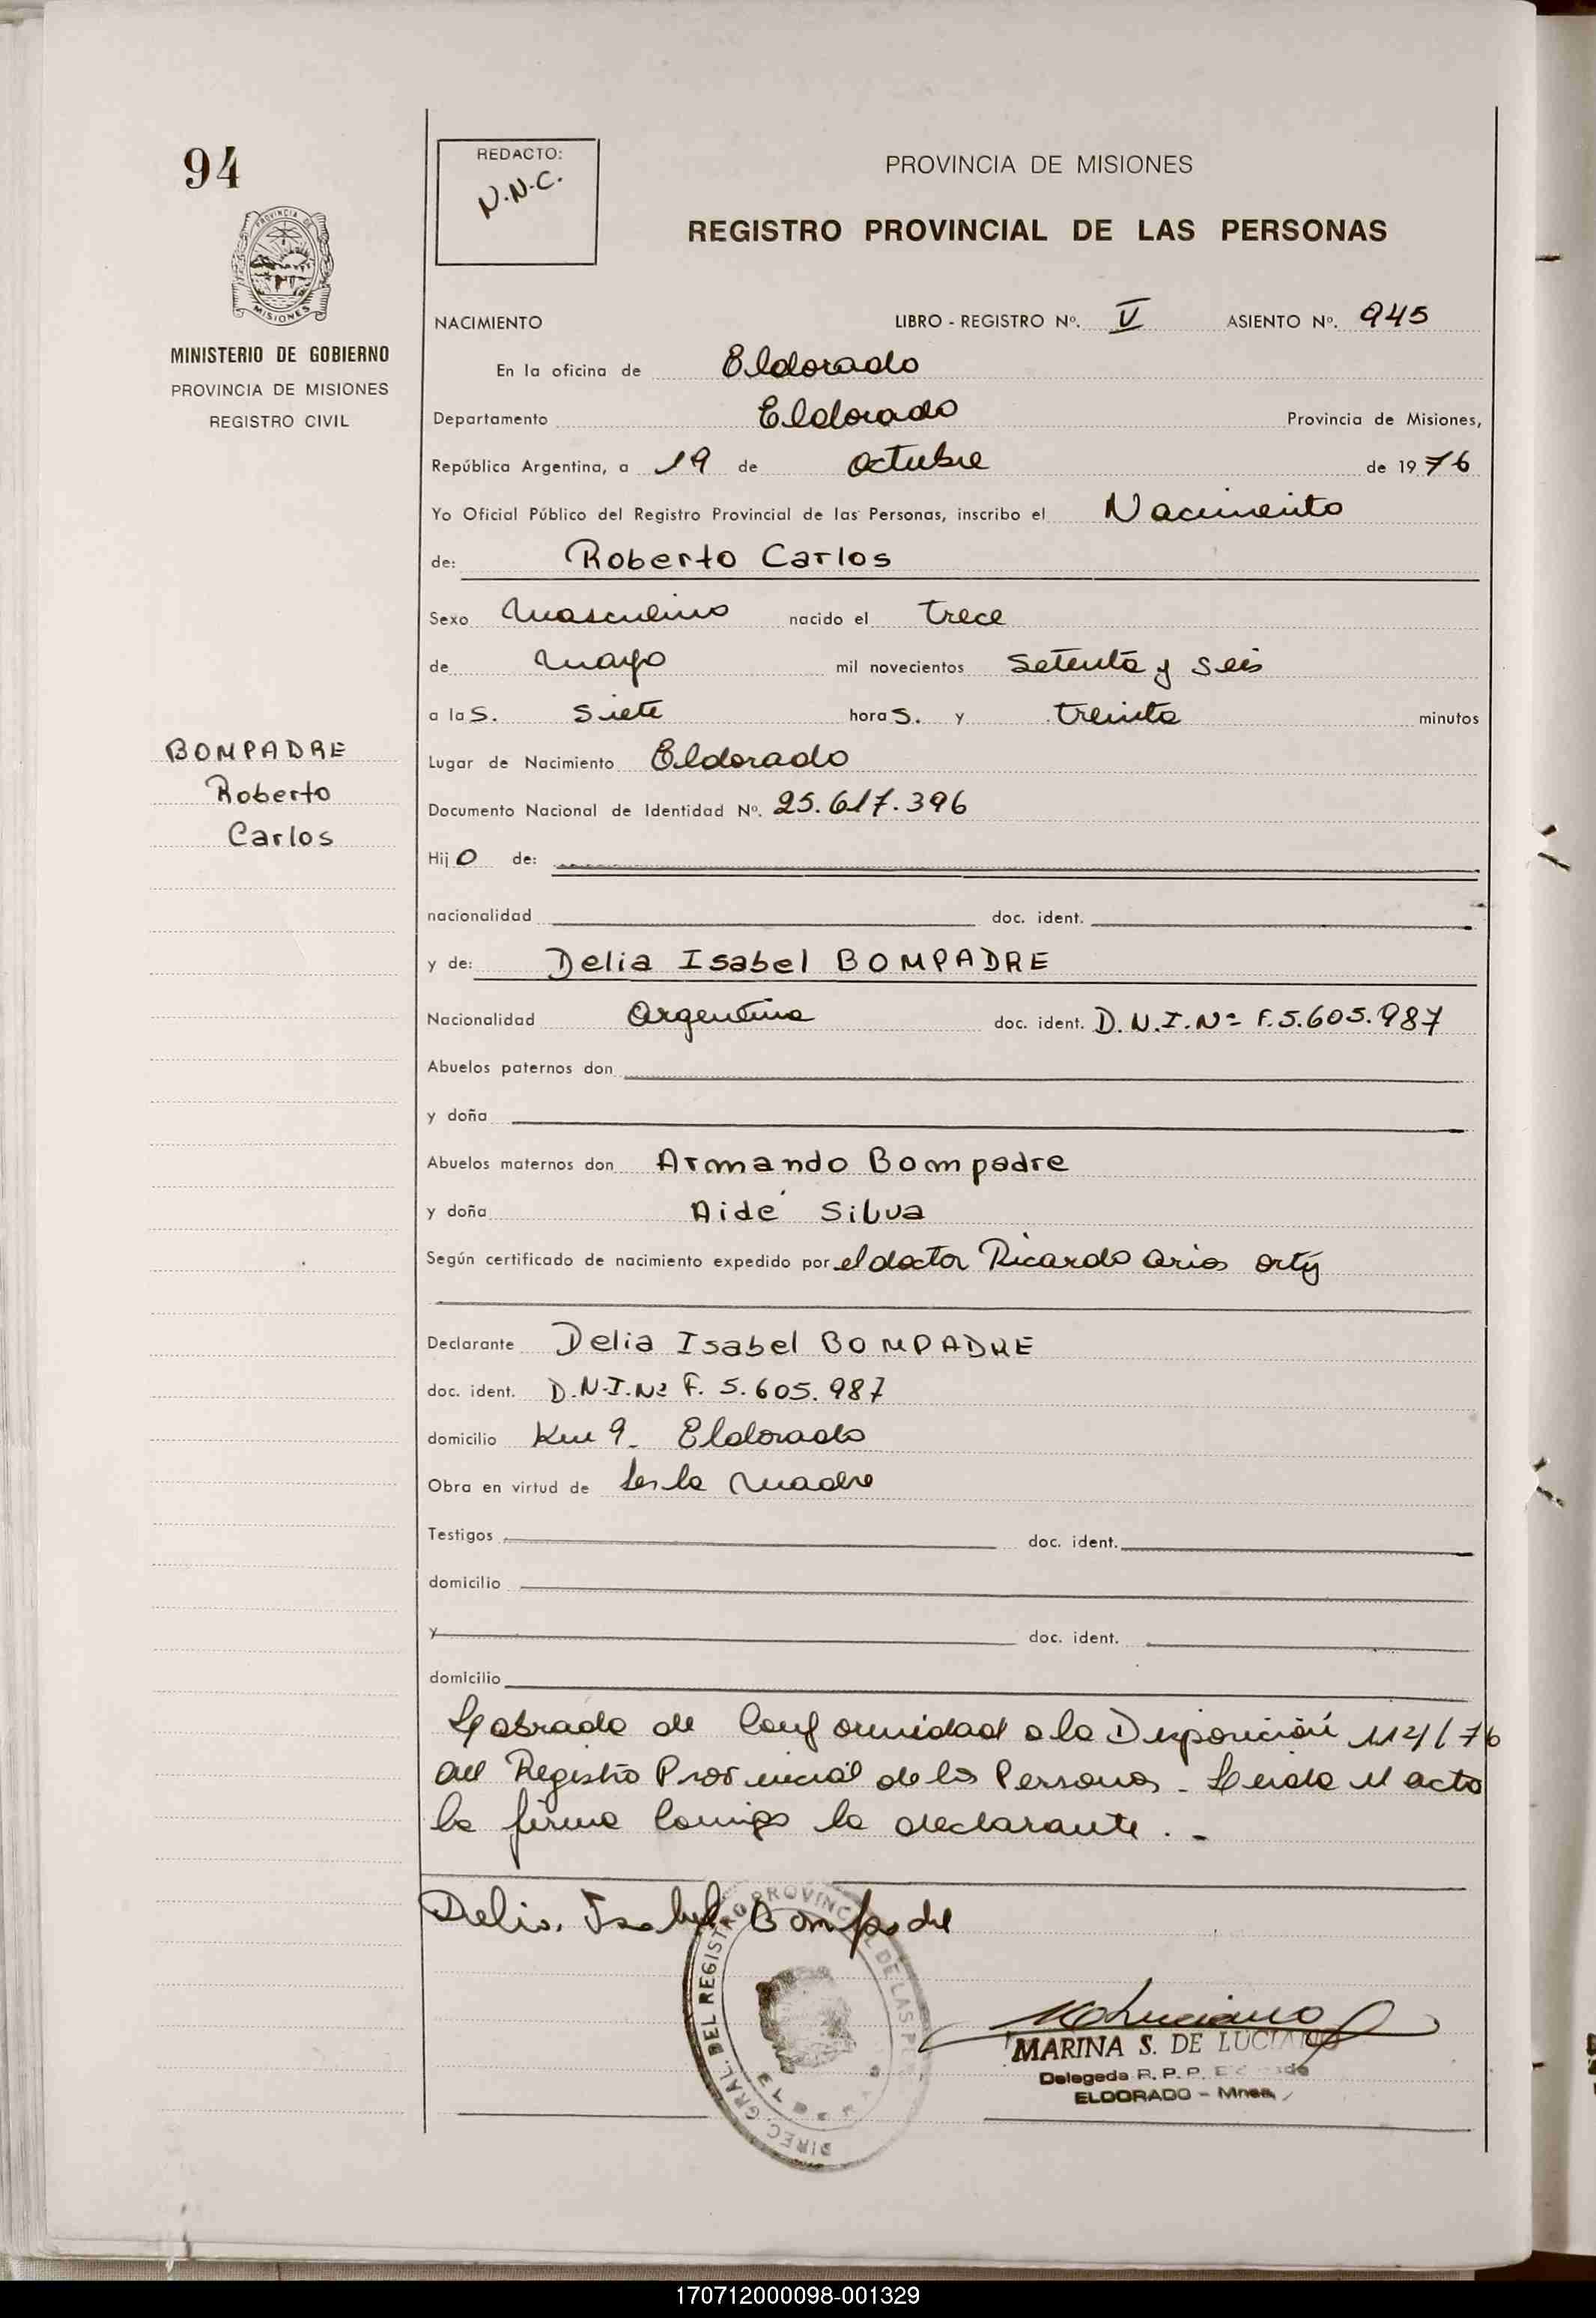 94
REDACTO:
N.N.C.
PROVINCIA DE MISIONES
REGISTRO PROVINCIAL DE LAS PERSONAS
PROVINCIA DE
MISIONES
MINISTERIO DE GOBIERNO
PROVINCIA DE MISIONES
REGISTRO CIVIL
BOMPADRE
Roberto
Carlos
NACIMIENTO LIBRO - REGISTRO Nº. V ASIENTO Nº. 945
En la oficina de Eldorado
Departamento Eldorado Provincia de Misiones,
República Argentina, a 19 de octubre de 1976
Yo Oficial Público del Registro Provincial de las Personas, inscribo el Nacimiento
de: Roberto Carlos
Sexo Masculino nacido el trece
de Mayo mil novecientos setenta y seis
a las. siete horas. y treinta minutos
Lugar de Nacimiento Eldorado
Documento Nacional de Identidad Nº. 25.617.396
Hijo de:
nacionalidad doc. ident.
y de: Delia Isabel BOMPADRE
Nacionalidad Argentina doc. ident. D.N.I.Nº F.5.605.987
Abuelos paternos don
y doña
Abuelos maternos don Armando Bompadre
y doña Aidé Silva
Según certificado de nacimiento expedido por el doctor Ricardo Arios
Declarante Delia Isabel BOMPADRE
doc. ident. D.N.I.Nº F. 5.605.987
domicilio Km 9. Eldorado
Obra en virtud de ser la Madre
Testigos doc. ident.
domicilio
y doc. ident.
domicilio
Labrada de Conformidad a la Disposición /76
del Registro Provincial de las Personas - Leida el acta
la firma Conmigo la declarante . -
Delia Isabel Bompadre
DIREC. GRAL. DEL REGISTRO PROVINCIAL DE LAS
MARINA S. DE LUCIANO
Delegada R. P. P. Eldorado
ELDORADO - Mnes.
170712000098-001329